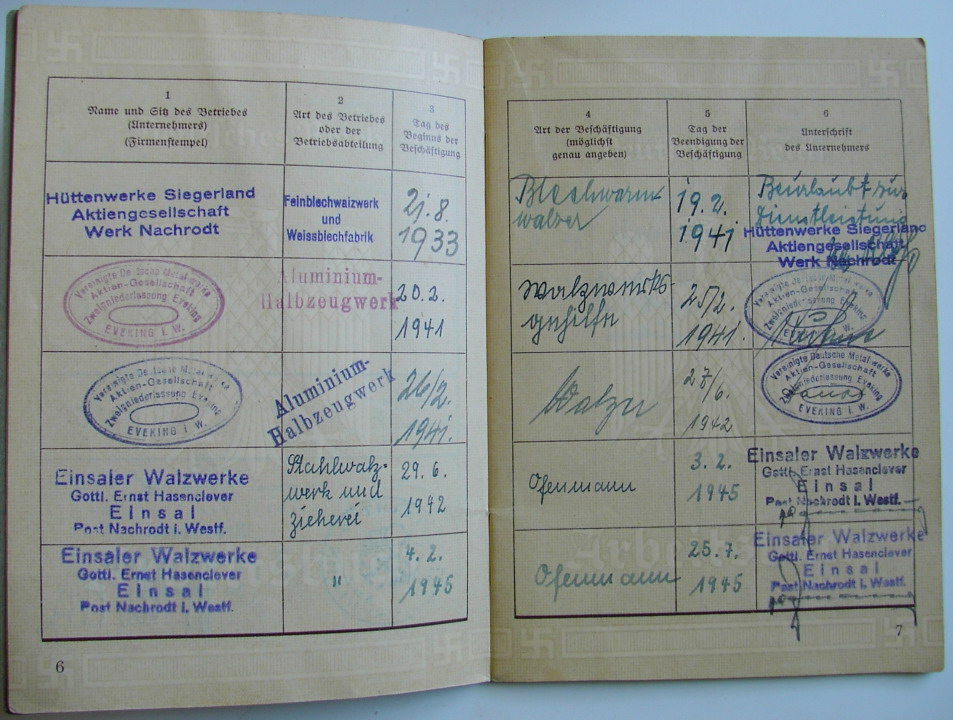 1
Name und Sitz des Betriebes
(Unternehmers)
(Firmenstempel)
2
Art des Betriebes
oder der
Betriebsabteilung
3
Tag des
Beginns der
Beschäftigung
4
Art der Beschäftigung
(möglichst
genau angeben)
5
Tag der
Beendigung der
Beschäftigung
6
Unterschrift
des Unternehmers
Hüttenwerke Siegerland
Aktiengesellschaft
Werk Nachrodt
Feinblechwalzwerk
und
Weissblechfabrik
21.8.
1933
19.2.
1941
Beurlaubt zur
Dienstleistung
Hüttenwerke Siegerland
Aktiengesellschaft
Werk Nachrodt
Vereinigte Deutsche Metallwerke
Aktien-Gesellschaft
Zweigniederlassung Eveking
EVEKING i. W.
Aluminium-
Halbzeugwerk
20.2.
1941
Walzwerks-
gehilfe
25/2.
1941.
Vereinigte Deutsche Metallwerke
Aktien-Gesellschaft
Zweigniederlassung Eveking
EVEKING i. W.
Vereinigte Deutsche Metallwerke
Aktien-Gesellschaft
Zweigniederlassung Eveking
EVEKING i. W.
Aluminium-
Halbzeugwerk
26/2.
1941.
Walzer
27/6.
1942
Vereinigte Deutsche Metallwerke
Aktien-Gesellschaft
Zweigniederlassung Eveking
EVEKING i. W.
Einsaler Walzwerke
Gottl. Ernst Hasenclever
Einsal
Post Nachrodt i. Westf.
Stahlwalz-
werk und
Zieherei
29.6.
1942
Ofenmann
3.2.
1945
Einsaler Walzwerke
Gottl. Ernst Hasenclever
Einsal
Post Nachrodt i. Westf.
Einsaler Walzwerke
Gottl. Ernst Hasenclever
Einsal
Post Nachrodt i. Westf.
"
4.2.
1945
Ofenmann
25.7.
1945
Einsaler Walzwerke
Gottl. Ernst Hasenclever
Einsal
Post Nachrodt i. Westf.
6
7